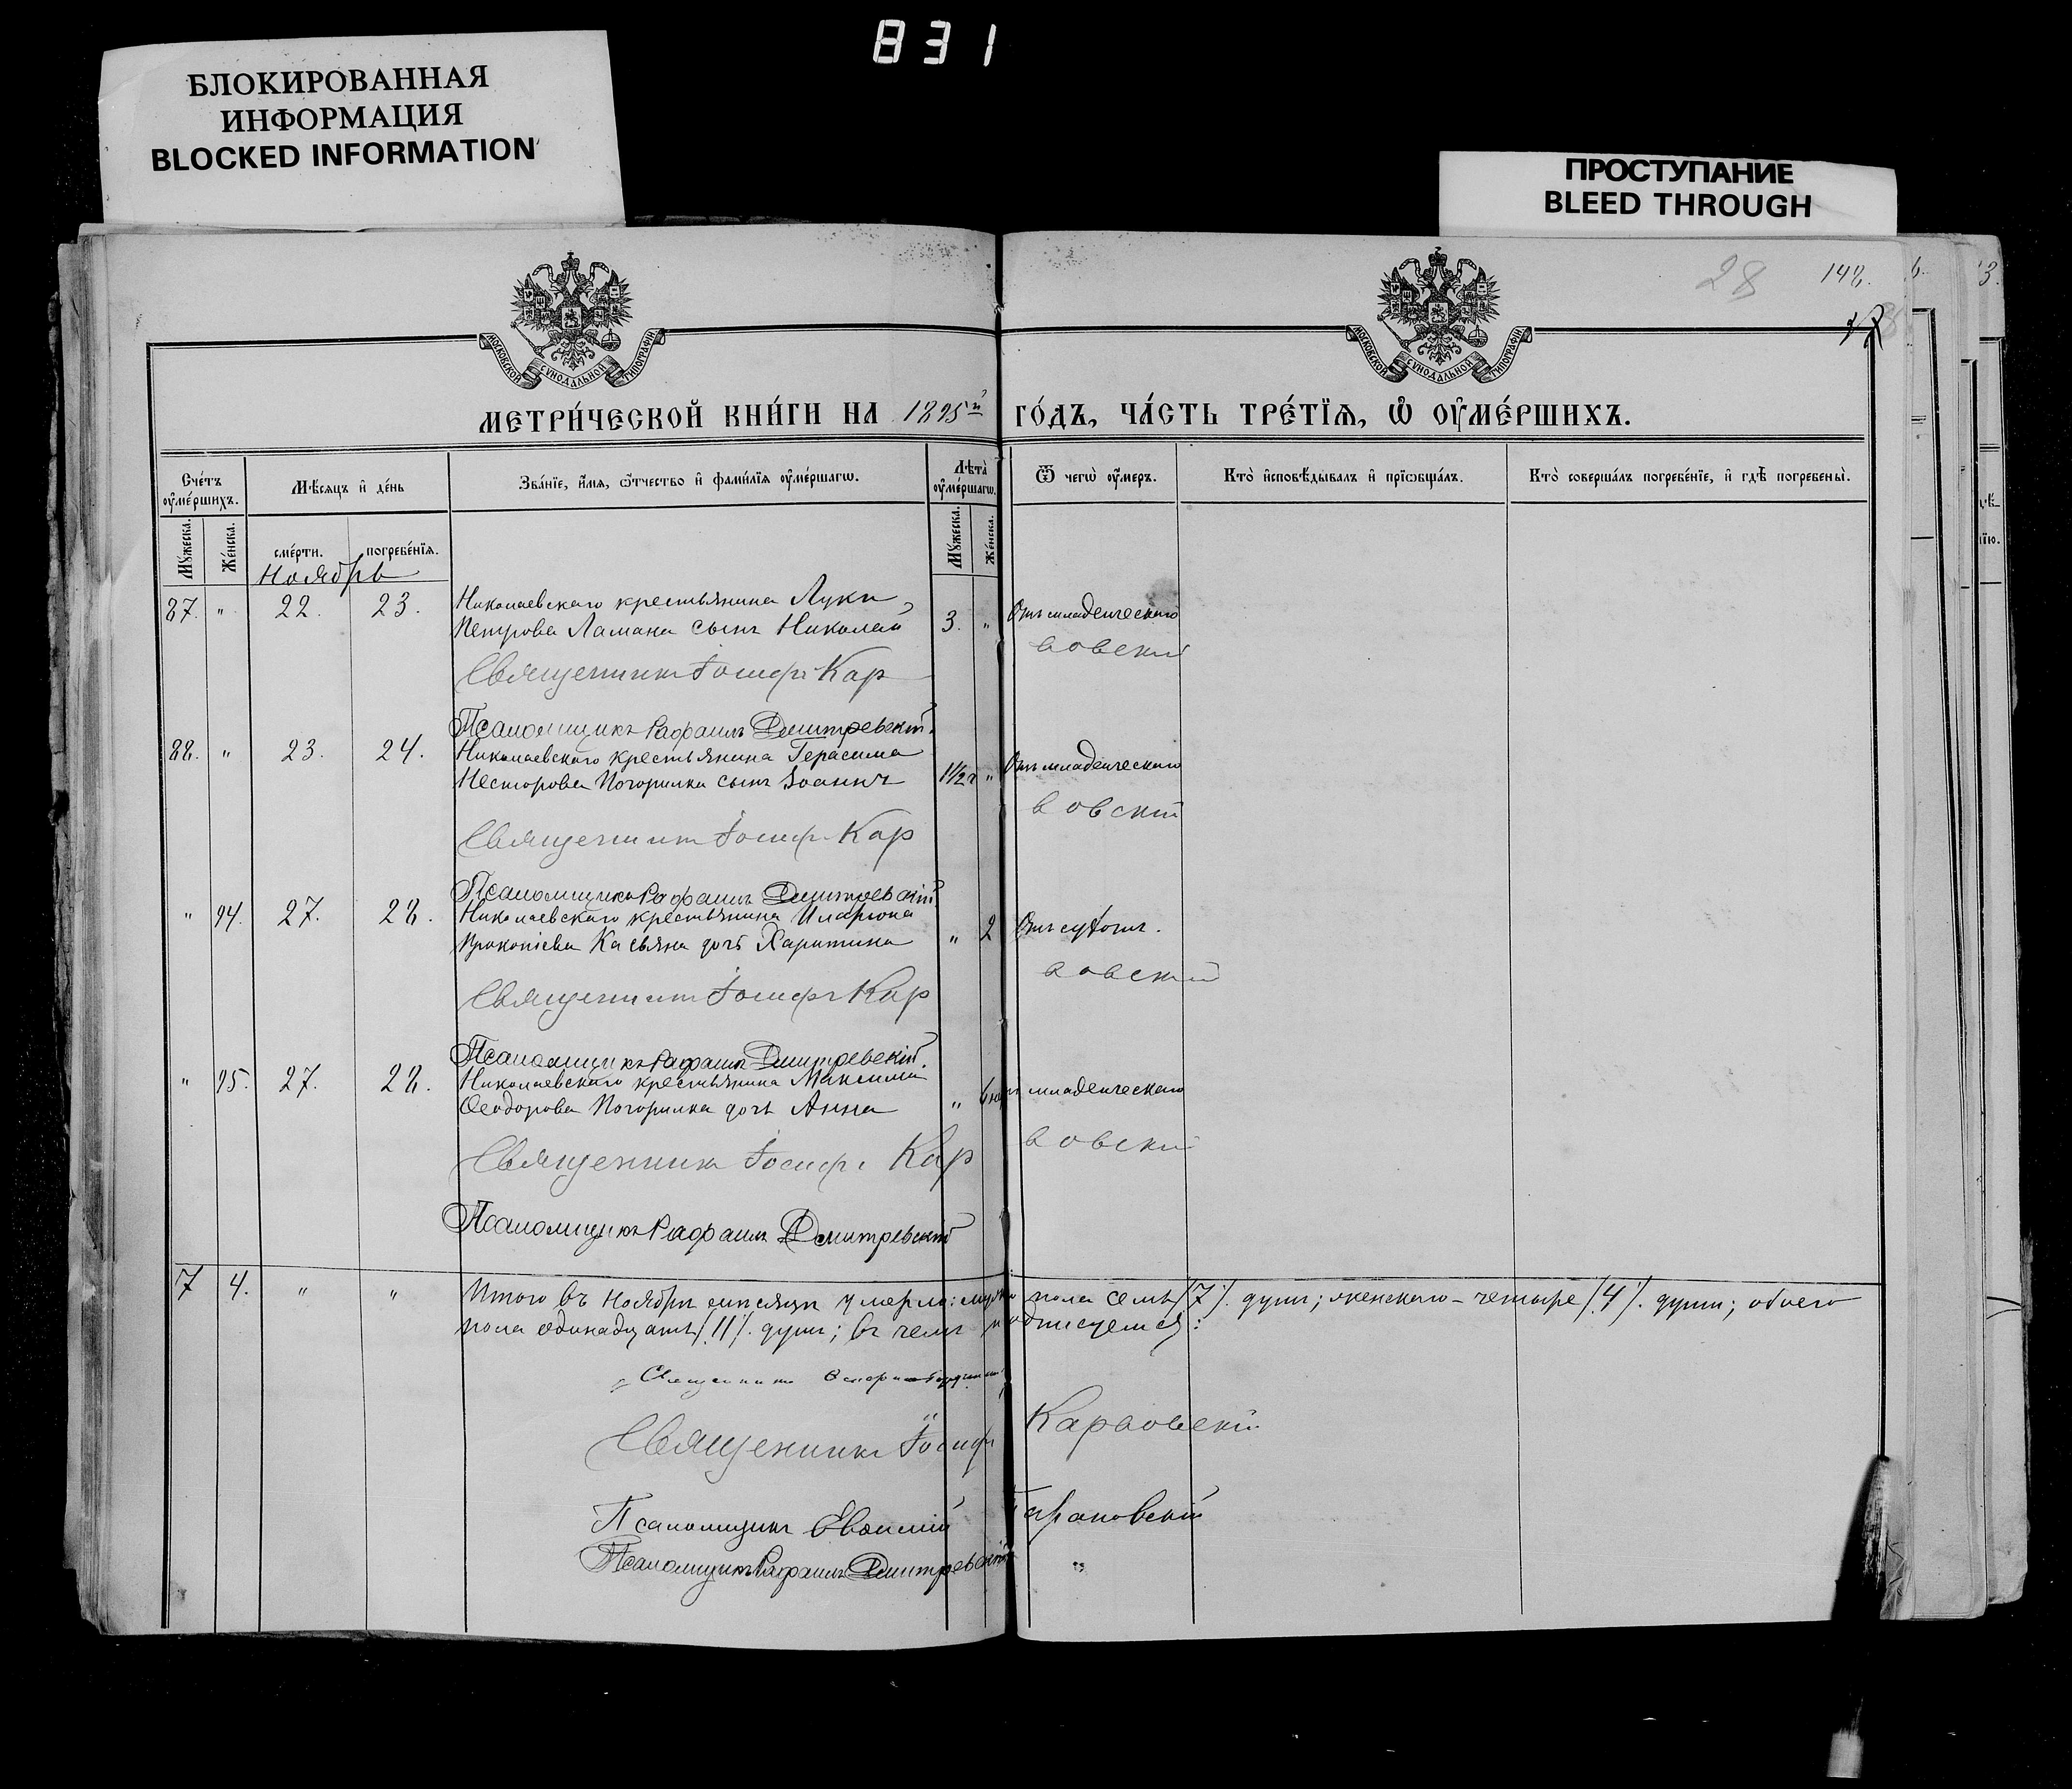 831
БЛОКИРОВАННАЯ
ИНФОРМАЦИЯ
BLOCKED INFORMATION
ПРОСТУПАНИЕ
BLEED THROUGH
28 148.
МОСКОВСКОЙ СѴНОДАЛЬНОЙ ТИПОГРАФІИ
МОСКОВСКОЙ СѴНОДАЛЬНОЙ ТИПОГРАФІИ
МЕТРИ́ЧЕСКОЙ КНИ́ГИ НА 1895й ГО́ДЪ, ЧА́СТЬ ТРЕ́ТЇѦ, Ѡ҆ ОУ҆МЕ́РШИХЪ.
Сче́тъ оу҆ме́ршихъ.
Мѣ́сяцъ и҆ де́нь
Зва́нїе, и҆́мѧ, ѻ҆́тчество и҆ фами́лїѧ оу҆ме́ршагѡ.
Лѣта̀ оу҆ме́ршагѡ.
Ѿ чегѡ̀ оу҆́меръ.
Кто̀ и҆сповѣ́дывалъ и҆ прїѡбща́лъ.
Кто̀ соверша́лъ погребе́нїе, и҆ гдѣ̀ погребены̀.
Мꙋ́жеска.
Же́нска.
сме́рти.
погребе́нїѧ.
Мꙋ́жеска.
Же́нска.
Ноябрь
87. " 22. 23. Николаевскаго крестьянина Луки
Петрова Ламана сынъ Николай 3. " Отъ младенческаго
Священникъ Іосифъ Карвовскій
Псаломщикъ Рафаилъ Дмитревскій.
88. " 23. 24. Николаевскаго крестьянина Герасима
Несторова Погорилка сынъ Іоаннъ 1½ г " Отъ младенческаго
Священникъ Іосифъ Карвовскій
Псаломщикъ Рафаилъ Дмитревскій.
" 94. 27. 28. Николаевскаго крестьянина Иларіона
Прокопіева Касьяна дочь Харитина " 2 Отъ сухотъ.
Священникъ Іосифъ Карвовскій
Псаломщикъ Рафаилъ Дмитревскій.
" 95. 27. 28. Николаевскаго крестьянина Максима
Ѳеодорова Погорилка дочь Анна " 6 младенческаго
Священникъ Іосифъ Карвовскій
Псаломщикъ Рафаилъ Дмитревскій
7 4. " " Итого въ Ноябрѣ мѣсяцѣ умерло: муж. пола семь /7/. душъ; женскаго – четыре /4/. души; обоего
пола одинадцать /11/. душъ; въ чемъ подписуемся:
Священникъ
Священникъ Іосифъ Карвовскій
Псаломщикъ Евѳимій Тарановскій
Псаломщикъ Рафаилъ Дмитревскій "